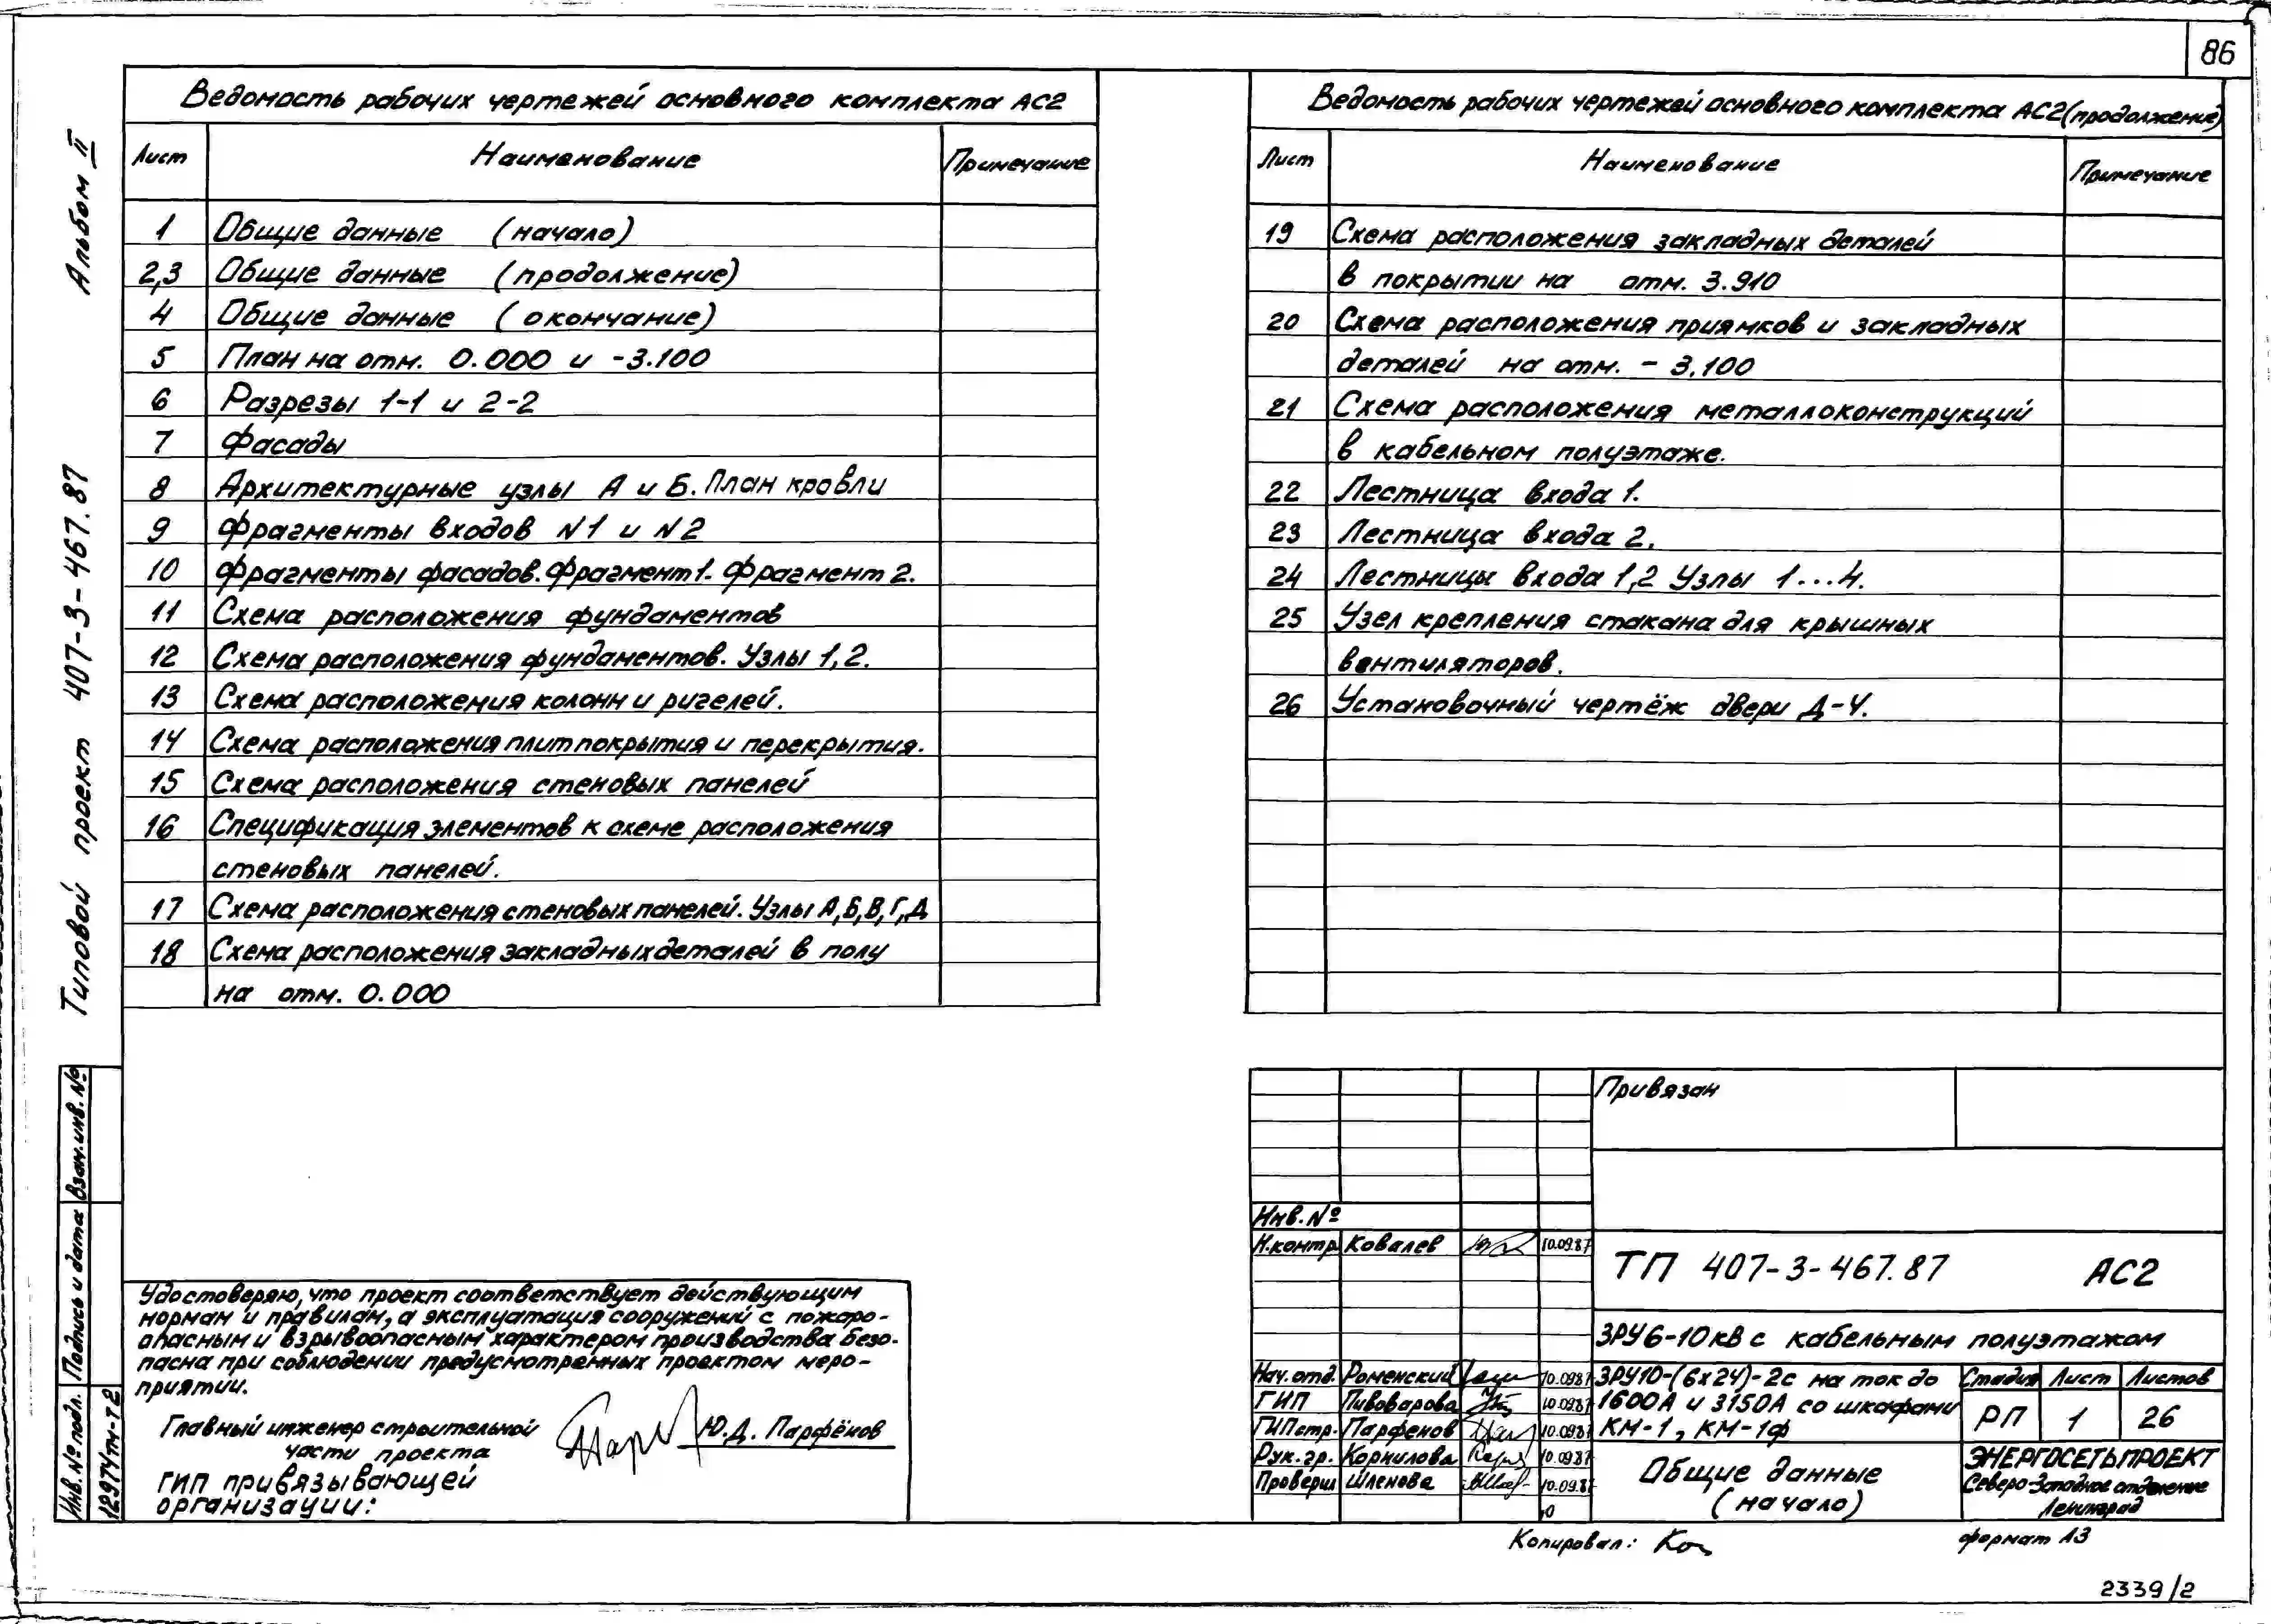 86
Альбом II
Типовой проект 407-3-467.87
Ведомость рабочих чертежей основного комплекта АС2
Лист Наименование Примечание
1 Общие данные (начало)
2,3 Общие данные (продолжение)
4 Общие данные (окончание)
5 План на отм. 0.000 и -3.100
6 Разрезы 1-1 и 2-2
7 Фасады
8 Архитектурные узлы А и Б. План кровли
9 Фрагменты входов N1 и N2
10 Фрагменты фасадов. Фрагмент 1. Фрагмент 2.
11 Схема расположения фундаментов
12 Схема расположения фундаментов. Узлы 1,2.
13 Схема расположения колонн и ригелей.
14 Схема расположения плит покрытия и перекрытия.
15 Схема расположения стеновых панелей
16 Спецификация элементов к схеме расположения
стеновых панелей.
17 Схема расположения стеновых панелей. Узлы А,Б,В,Г,Д
18 Схема расположения закладных деталей в полу
на отм. 0.000
Ведомость рабочих чертежей основного комплекта АС2 (продолжение)
Лист Наименование Примечание
19 Схема расположения закладных деталей
в покрытии на отм. 3.910
20 Схема расположения приямков и закладных
деталей на отм. - 3.100
21 Схема расположения металлоконструкций
в кабельном полуэтаже.
22 Лестница входа 1.
23 Лестница входа 2.
24 Лестницы входа 1,2 Узлы 1...4.
25 Узел крепления стакана для крышных
вентиляторов.
26 Установочный чертёж двери Д-4.
Взам. инв. №
Подпись и дата
Инв. № подл.
12974тм-т2
Удостоверяю, что проект соответствует действующим
нормам и правилам, а эксплуатация сооружений с пожаро-
опасным и взрывоопасным характером производства безо-
пасна при соблюдении предусмотренных проектом меро-
приятии.
Главный инженер строительной
части проекта Ю.Д. Парфёнов
ГИП привязывающей
организации:
Привязан
Инв. №
Н.контр. Ковалев 10.09.87
ТП 407-3-467.87 АС2
ЗРУ 6-10 кВ с кабельным полуэтажом
Нач. отд. Роменский 10.09.87
ГИП Пивоварова 10.09.87
ГИПстр. Парфенов 10.09.87
Рук. гр. Корнилова 10.09.87
Проверил Шленова 10.09.87
ЗРУ10-(6x24)-2с на ток до
1600А и 3150А со шкафами
КМ-1, КМ-1Ф
Стадия Лист Листов
РП 1 26
Общие данные
(начало)
ЭНЕРГОСЕТЬПРОЕКТ
Северо-Западное отделение
Ленинград
Копировал:
формат А3
2339/2